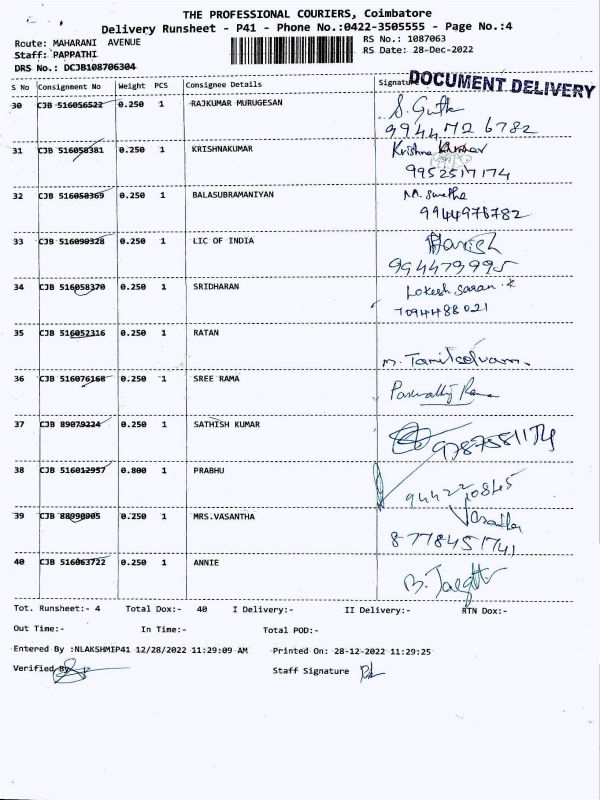 THE PROFESSIONAL COURIERS, Coimbatore
Delivery Runsheet - P41 - Phone No.:0422-3505555 - Page No.:4
Route: MAHARANI AVENUE
RS No.: 1087063
Staff: PAPPATHI
RS Date: 28-Dec-2022
DRS No.: DCJB108706304
DOCUMENT DELIVERY
S No Consignment No Weight PCS Consignee Details Signature
30 CJB 516056522 0.250 1 RAJKUMAR MURUGESAN
9944726782
31 CJB 516058381 0.250 1 KRISHNAKUMAR Krishna Kumar
9952517174
32 CJB 516058369 0.250 1 BALASUBRAMANIYAN M. Swetha
9944976782
33 CJB 516090328 0.250 1 LIC OF INDIA Harish
9944479995
34 CJB 516058370 0.250 1 SRIDHARAN Lokesh Saran.k
7094488021
35 CJB 516052316 0.250 1 RATAN
M. Tamilselvam.
36 CJB 516076168 0.250 1 SREE RAMA
37 CJB 89079224 0.250 1 SATHISH KUMAR
9787581174
38 CJB 516012957 0.800 1 PRABHU
9442220845
39 CJB 88990905 0.250 1 MRS.VASANTHA Vasantha
8778451741
40 CJB 516063722 0.250 1 ANNIE
Tot. Runsheet:- 4 Total Dox:- 40 I Delivery:- II Delivery:- RTN Dox:-
Out Time:- In Time:- Total POD:-
Entered By :NLAKSHMIP41 12/28/2022 11:29:09 AM Printed On: 28-12-2022 11:29:25
Verified By Staff Signature